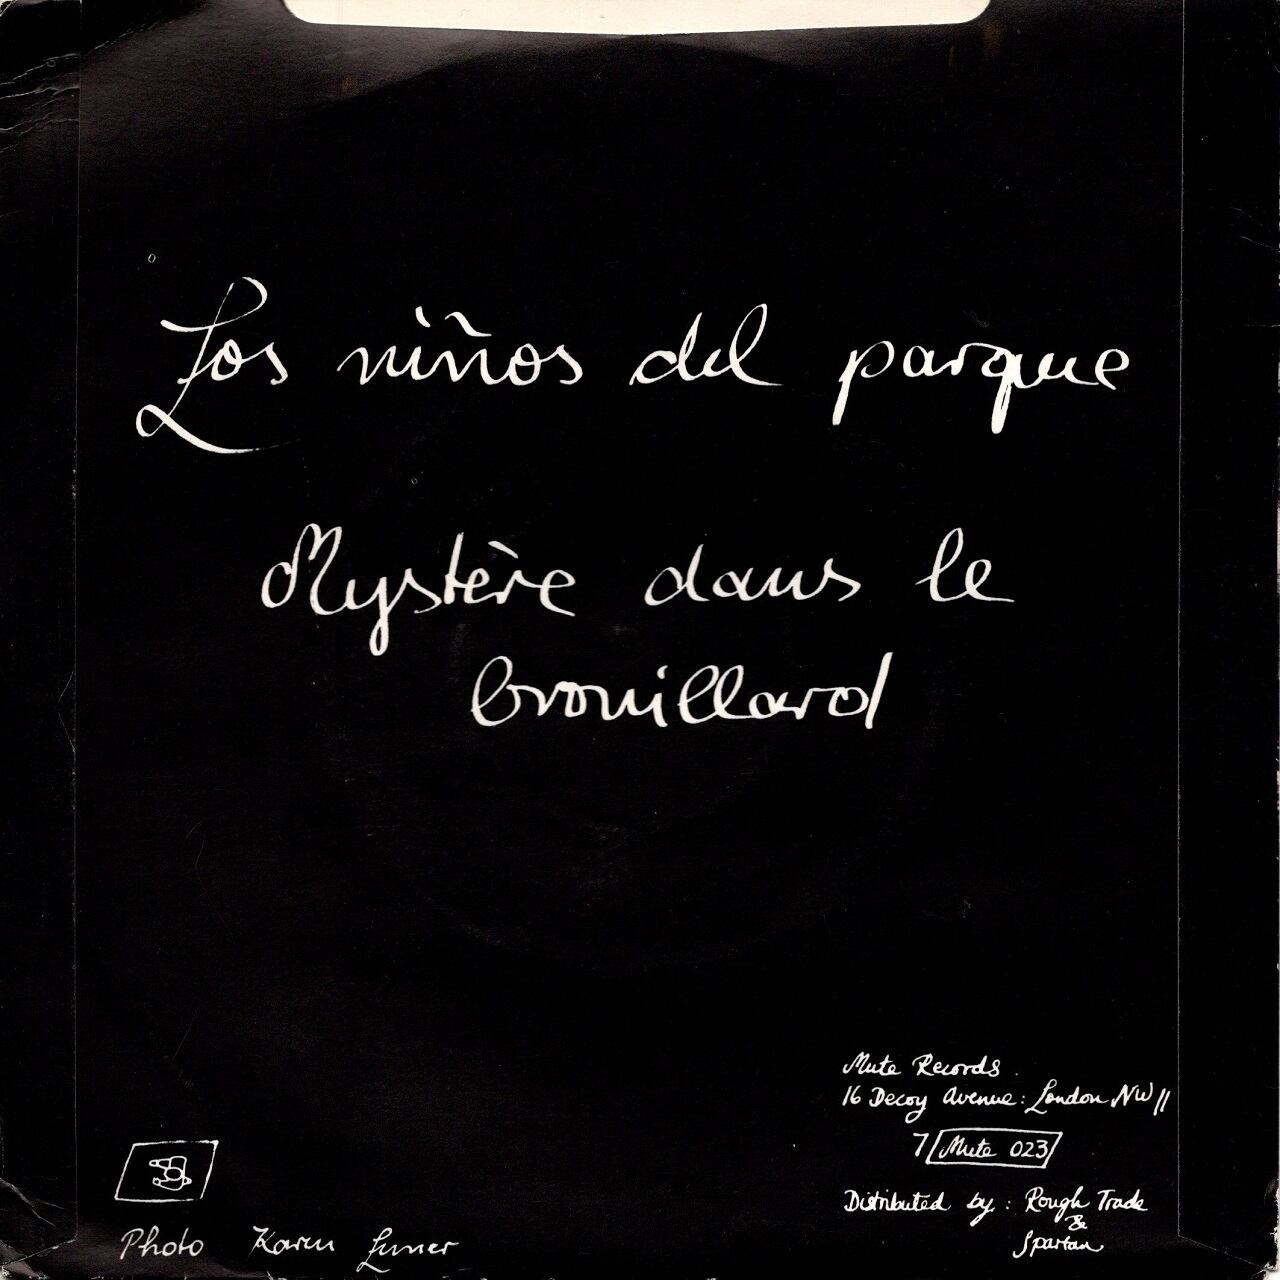 Los niños del parque
Mystère dans le
brouillard
Mute Records.
16 Decoy Avenue: London NW11
7 Mute 023
Distributed by: Rough Trade
&
Spartan
Photo Karen Luner